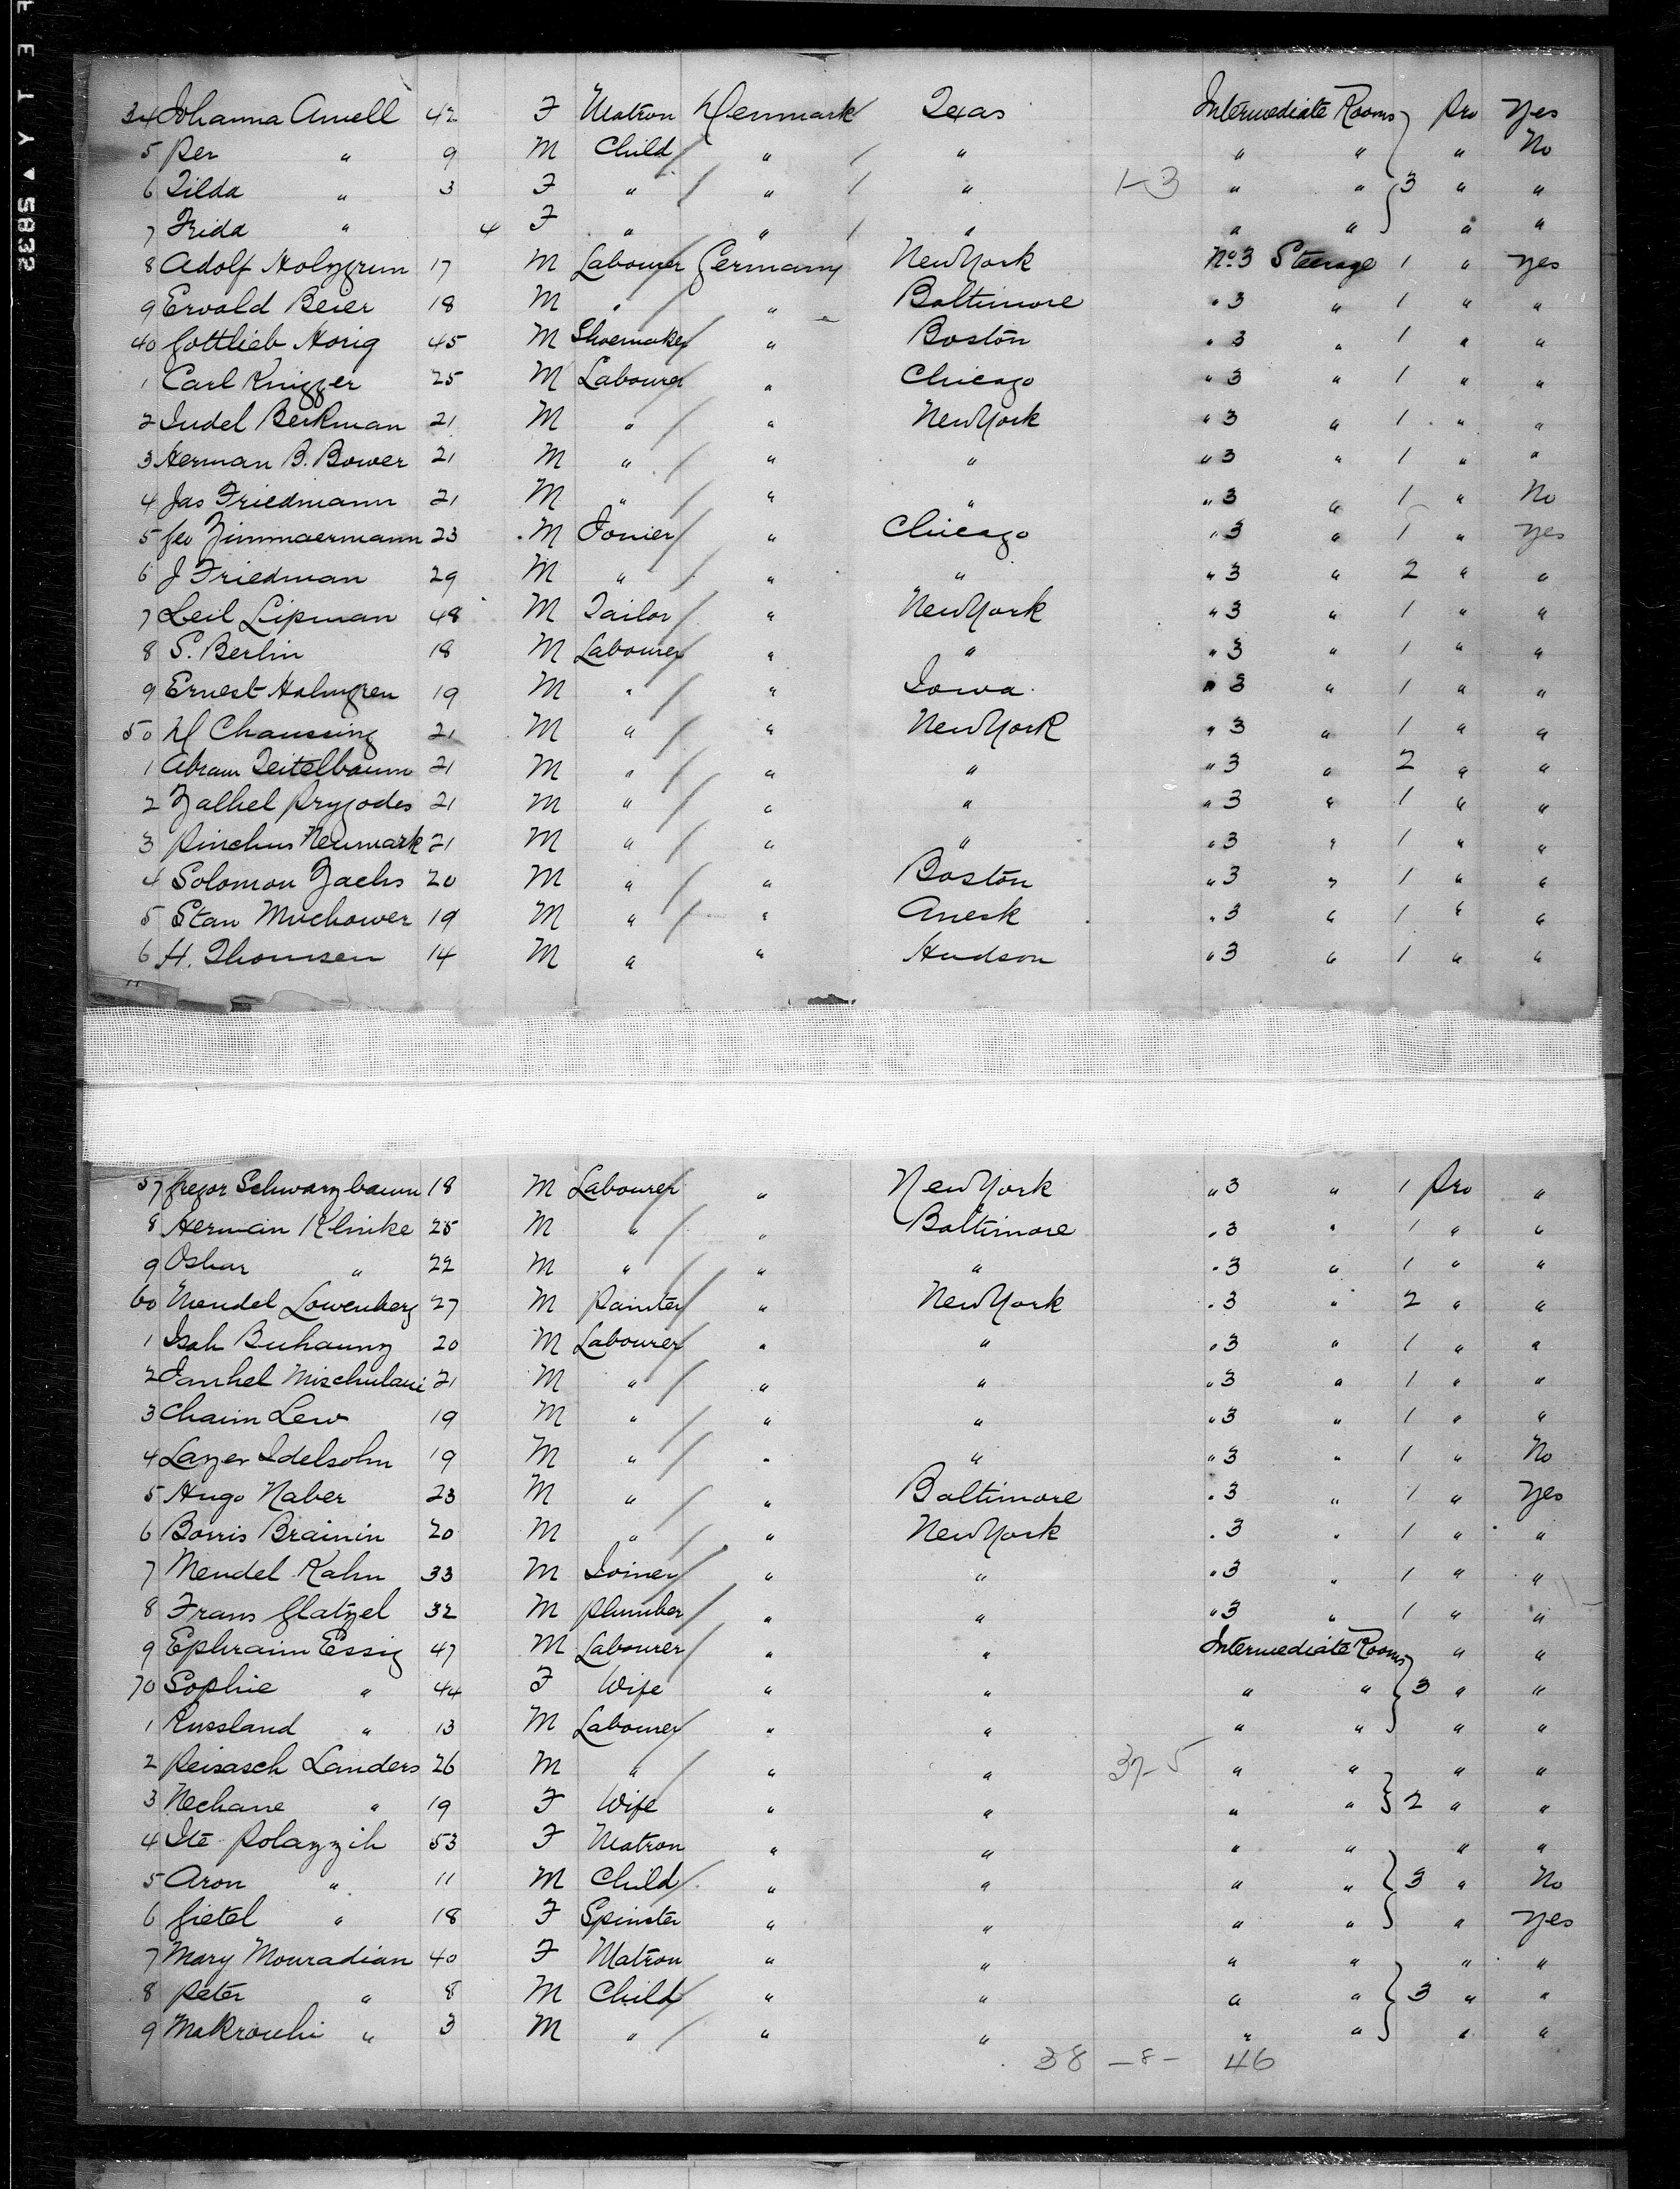 34 Johanna Amell 42 F Matron Denmark Texas Intermediate Rooms Pro Yes
5 Per " 9 M Child " " " " " No
6 Tilda " 3 F " " " 1-3 " " 3 " "
7 Frida " 4 F " " " " " " "
8 Adolf Holzgrun 17 M Labourer Germany New York No 3 Steerage 1 " Yes
9 Ervald Beier 18 M " " Baltimore " 3 " 1 " "
40 Gottlieb Horig 45 M Shoemaker " Boston " 3 " 1 " "
1 Carl Knigger 25 M Labourer " Chicago " 3 " 1 " "
2 Judel Berkman 21 M " " New York " 3 " 1 " "
3 Herman B. Bower 21 M " " " " 3 " 1 " "
4 Jas Friedmann 21 M " " " " 3 " 1 " No
5 Geo Zimmaermann 23 M Joiner " Chicago " 3 " 1 " Yes
6 J Friedman 29 M " " " " 3 " 2 " "
7 Leil Lipman 48 M Tailor " New York " 3 " 1 " "
8 S. Berlin 18 M Labourer " " " 3 " 1 " "
9 Ernest Holmgren 19 M " " Iowa " 3 " 1 " "
50 M Chaussing 21 M " " New York " 3 " 1 " "
1 Abram Teitelbaum 21 M " " " " 3 " 2 " "
2 Zalhel Pryzodes 21 M " " " " 3 " 1 " "
3 Pinchus Neumark 21 M " " " " 3 " 1 " "
4 Solomon Zachs 20 M " " Boston " 3 " 1 " "
5 Stan Muchower 19 M " " " 3 " 1 " "
6 H. Thomsen 14 M " " Hudson " 3 " 1 " "
57 Gregor Schwarzbaum 18 M Labourer " New York " 3 " 1 Pro "
8 Herman Klinke 25 M " " Baltimore " 3 " 1 " "
9 Oskar " 22 M " " " " 3 " 1 " "
60 Mendel Lowenberg 27 M Painter " New York " 3 " 2 " "
1 Isak Buhaung 20 M Labourer " " " 3 " 1 " "
2 Jankel 21 M " " " " 3 " 1 " "
3 Chaim Lew 19 M " " " " 3 " 1 " "
4 Lazer Idelsohn 19 M " " " " 3 " 1 " No
5 Hugo Naber 23 M " " Baltimore " 3 " 1 " Yes
6 Borris Brainin 20 M " " New York " 3 " 1 " "
7 Mendel Kahn 33 M Joiner " " " 3 " 1 " "
8 Frans Glatzel 32 M Plumber " " " 3 " 1 " "
9 Ephraim Essig 47 M Labourer " " Intermediate Rooms " "
70 Sophie " 44 F Wife " " " " 3 " "
1 Russland " 13 M Labourer " " " " " "
2 Peisasch Landers 26 M " " " 37-5 " " " "
3 Nechane " 19 F Wife " " " " 2 " "
4 Ite Polazzik 53 F Matron " " " " " "
5 Aron " 11 M Child " " " " 3 " No
6 Gietel " 18 F Spinster " " " " " Yes
7 Mary Mouradian 40 F Matron " " " " " "
8 Peter " 8 M Child " " " " 3 " "
9 Makrouhi " 3 M " " " " " " "
38 - 8 - 46
E I T Y ▼ 5832